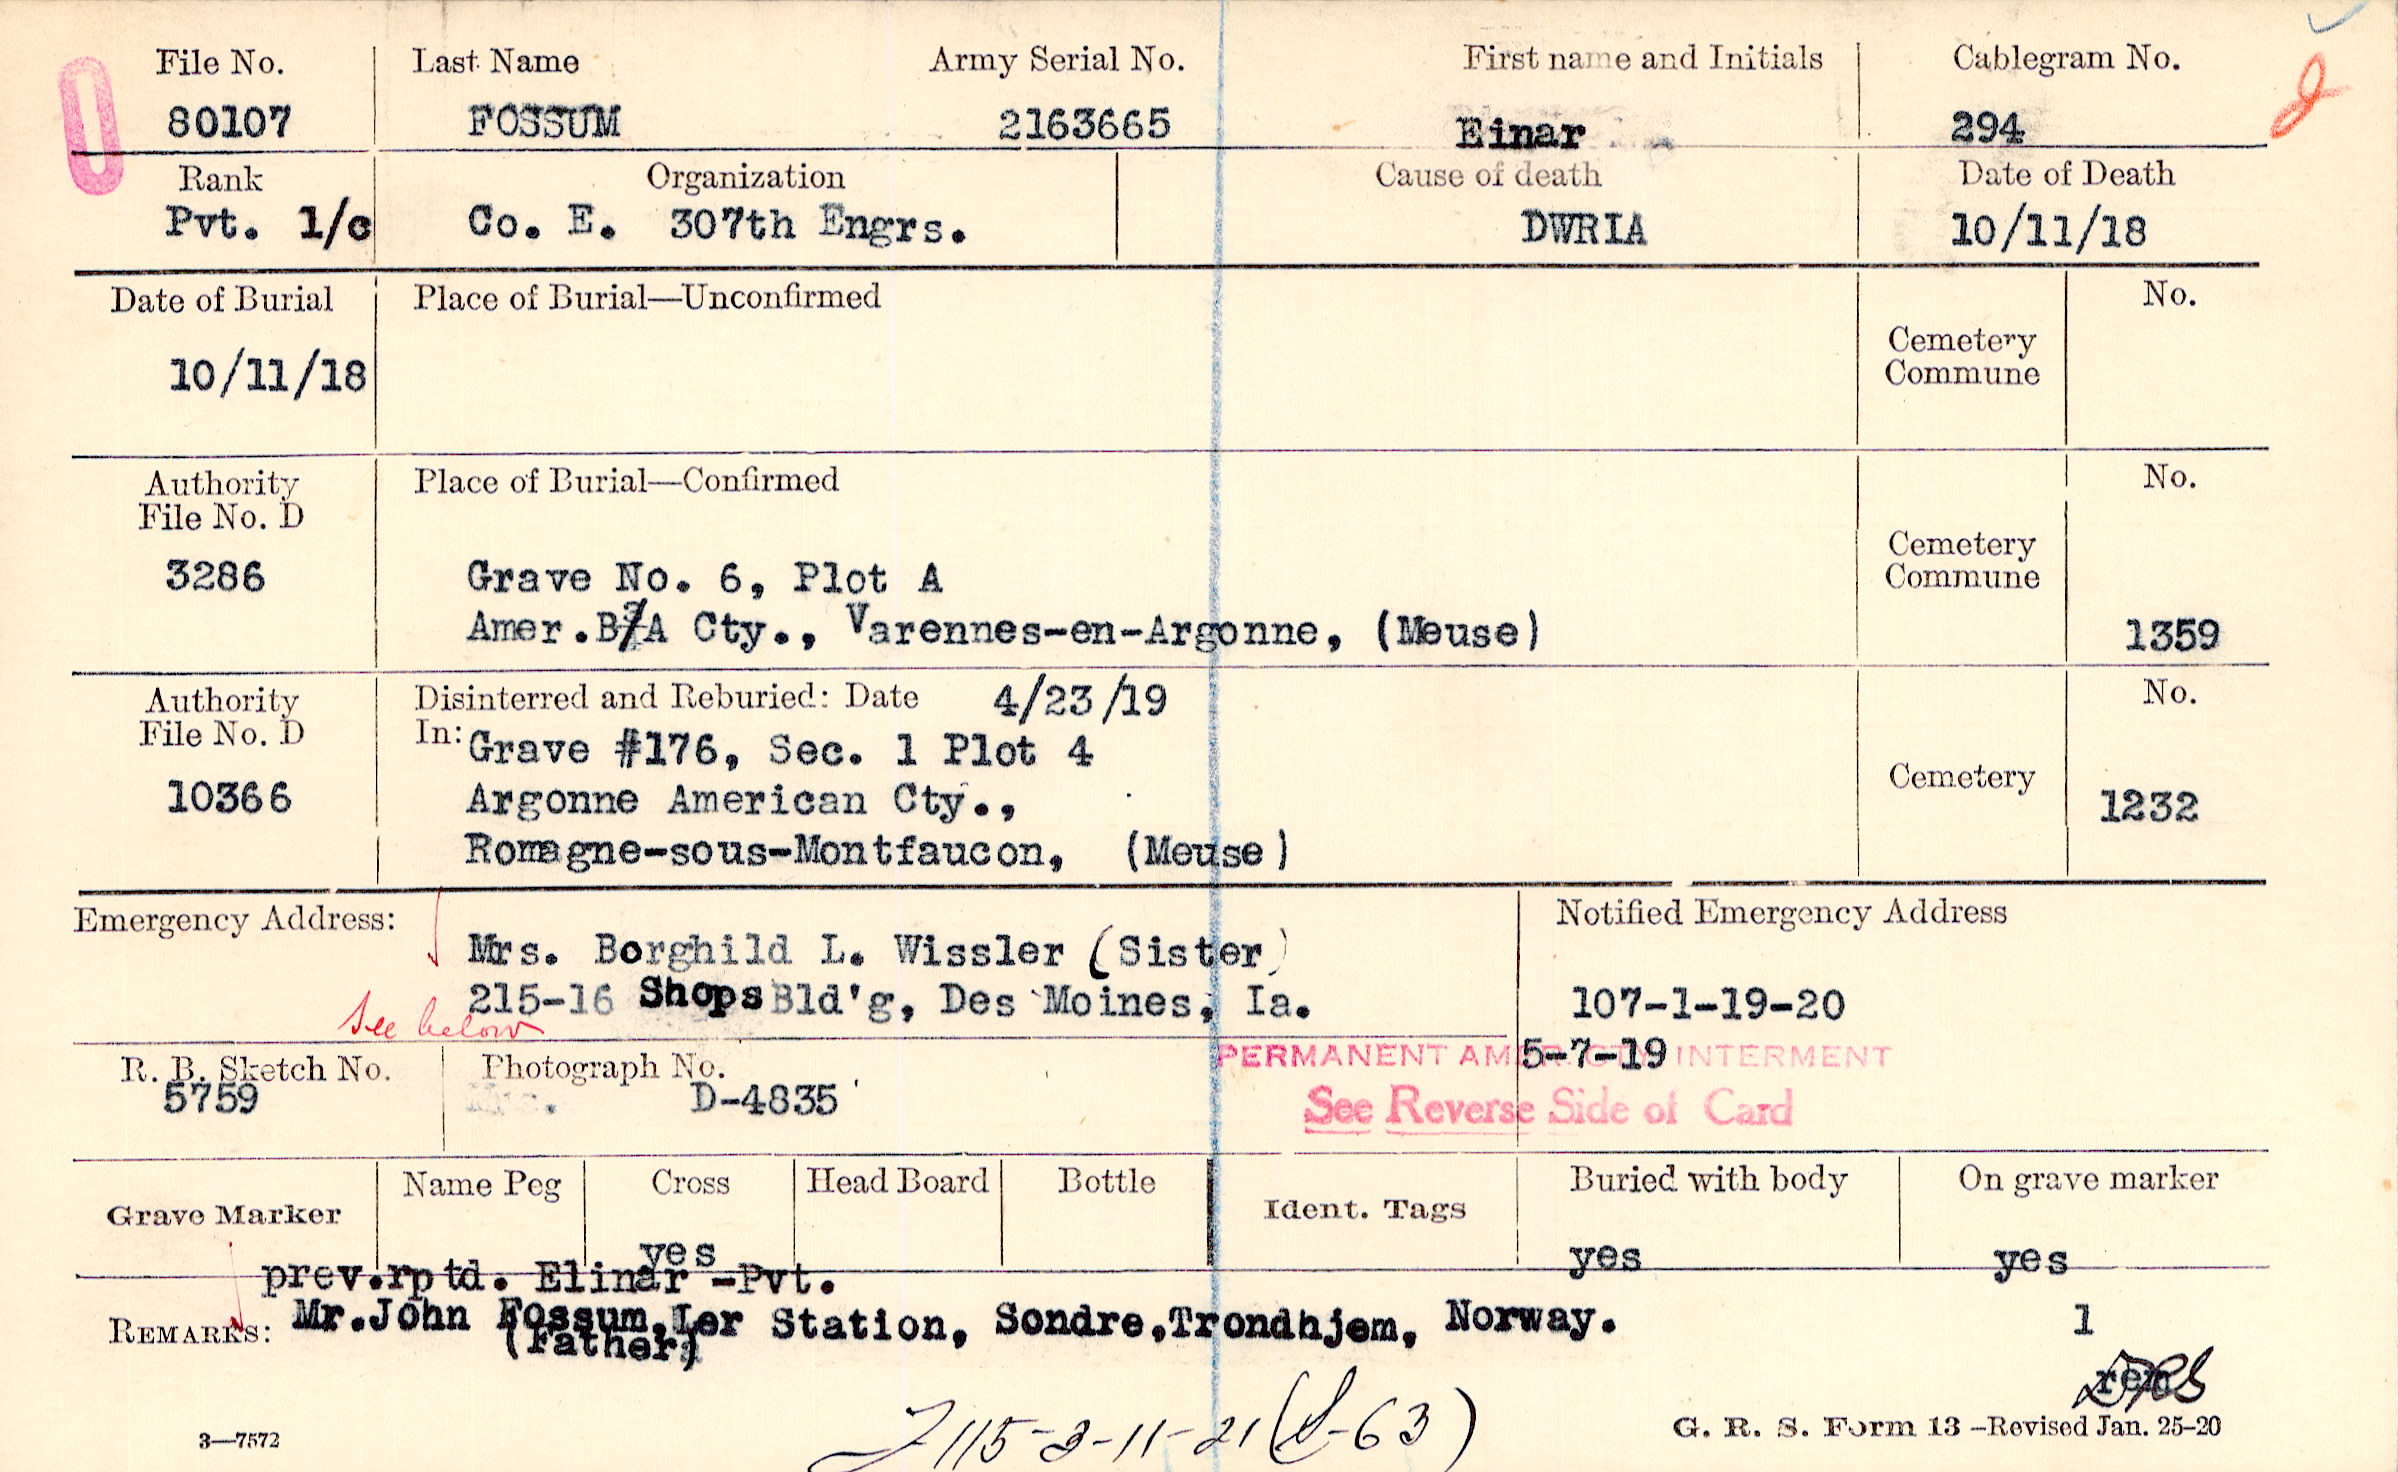 File No. Last Name Army Serial No. First name and Initials Cablegram No.
80107 FOSSUM 2163665 Einar 294
Rank Organization Cause of death Date of Death
Pvt. 1/c Co. E. 307th Engrs. DWRIA 10/11/18
Date of Burial Place of Burial—Unconfirmed No.
Cemetery
Commune
10/11/18
Authority Place of Burial—Confirmed No.
File No. D
Cemetery
3286 Grave No. 6, Plot A Commune
Amer.B/A Cty., Varennes-en-Argonne, (Meuse) 1359
Authority Disinterred and Reburied: Date 4/23/19 No.
File No. D In: Grave #176, Sec. 1 Plot 4
Cemetery
10366 Argonne American Cty., 1232
Romagne-sous-Montfaucon, (Meuse)
Emergency Address: Notified Emergency Address
Mrs. Borghild L. Wissler (Sister)
215-16 Shops Bld'g, Des Moines, Ia. 107-1-19-20
See below
R. B. Sketch No. Photograph No. PERMANENT AMER. CTY. INTERMENT 5-7-19
5759 D-4835 See Reverse Side of Card
Grave Marker Name Peg Cross Head Board Bottle Ident. Tags Buried with body On grave marker
yes yes yes
prev.rptd. Elinar -Pvt.
REMARKS: Mr.John Fossum,Ler Station, Sondre,Trondhjem, Norway. 1
(Father)
115-3-11-21 (-63)
3—7572 G. R. S. Form 13 -Revised Jan. 25-20